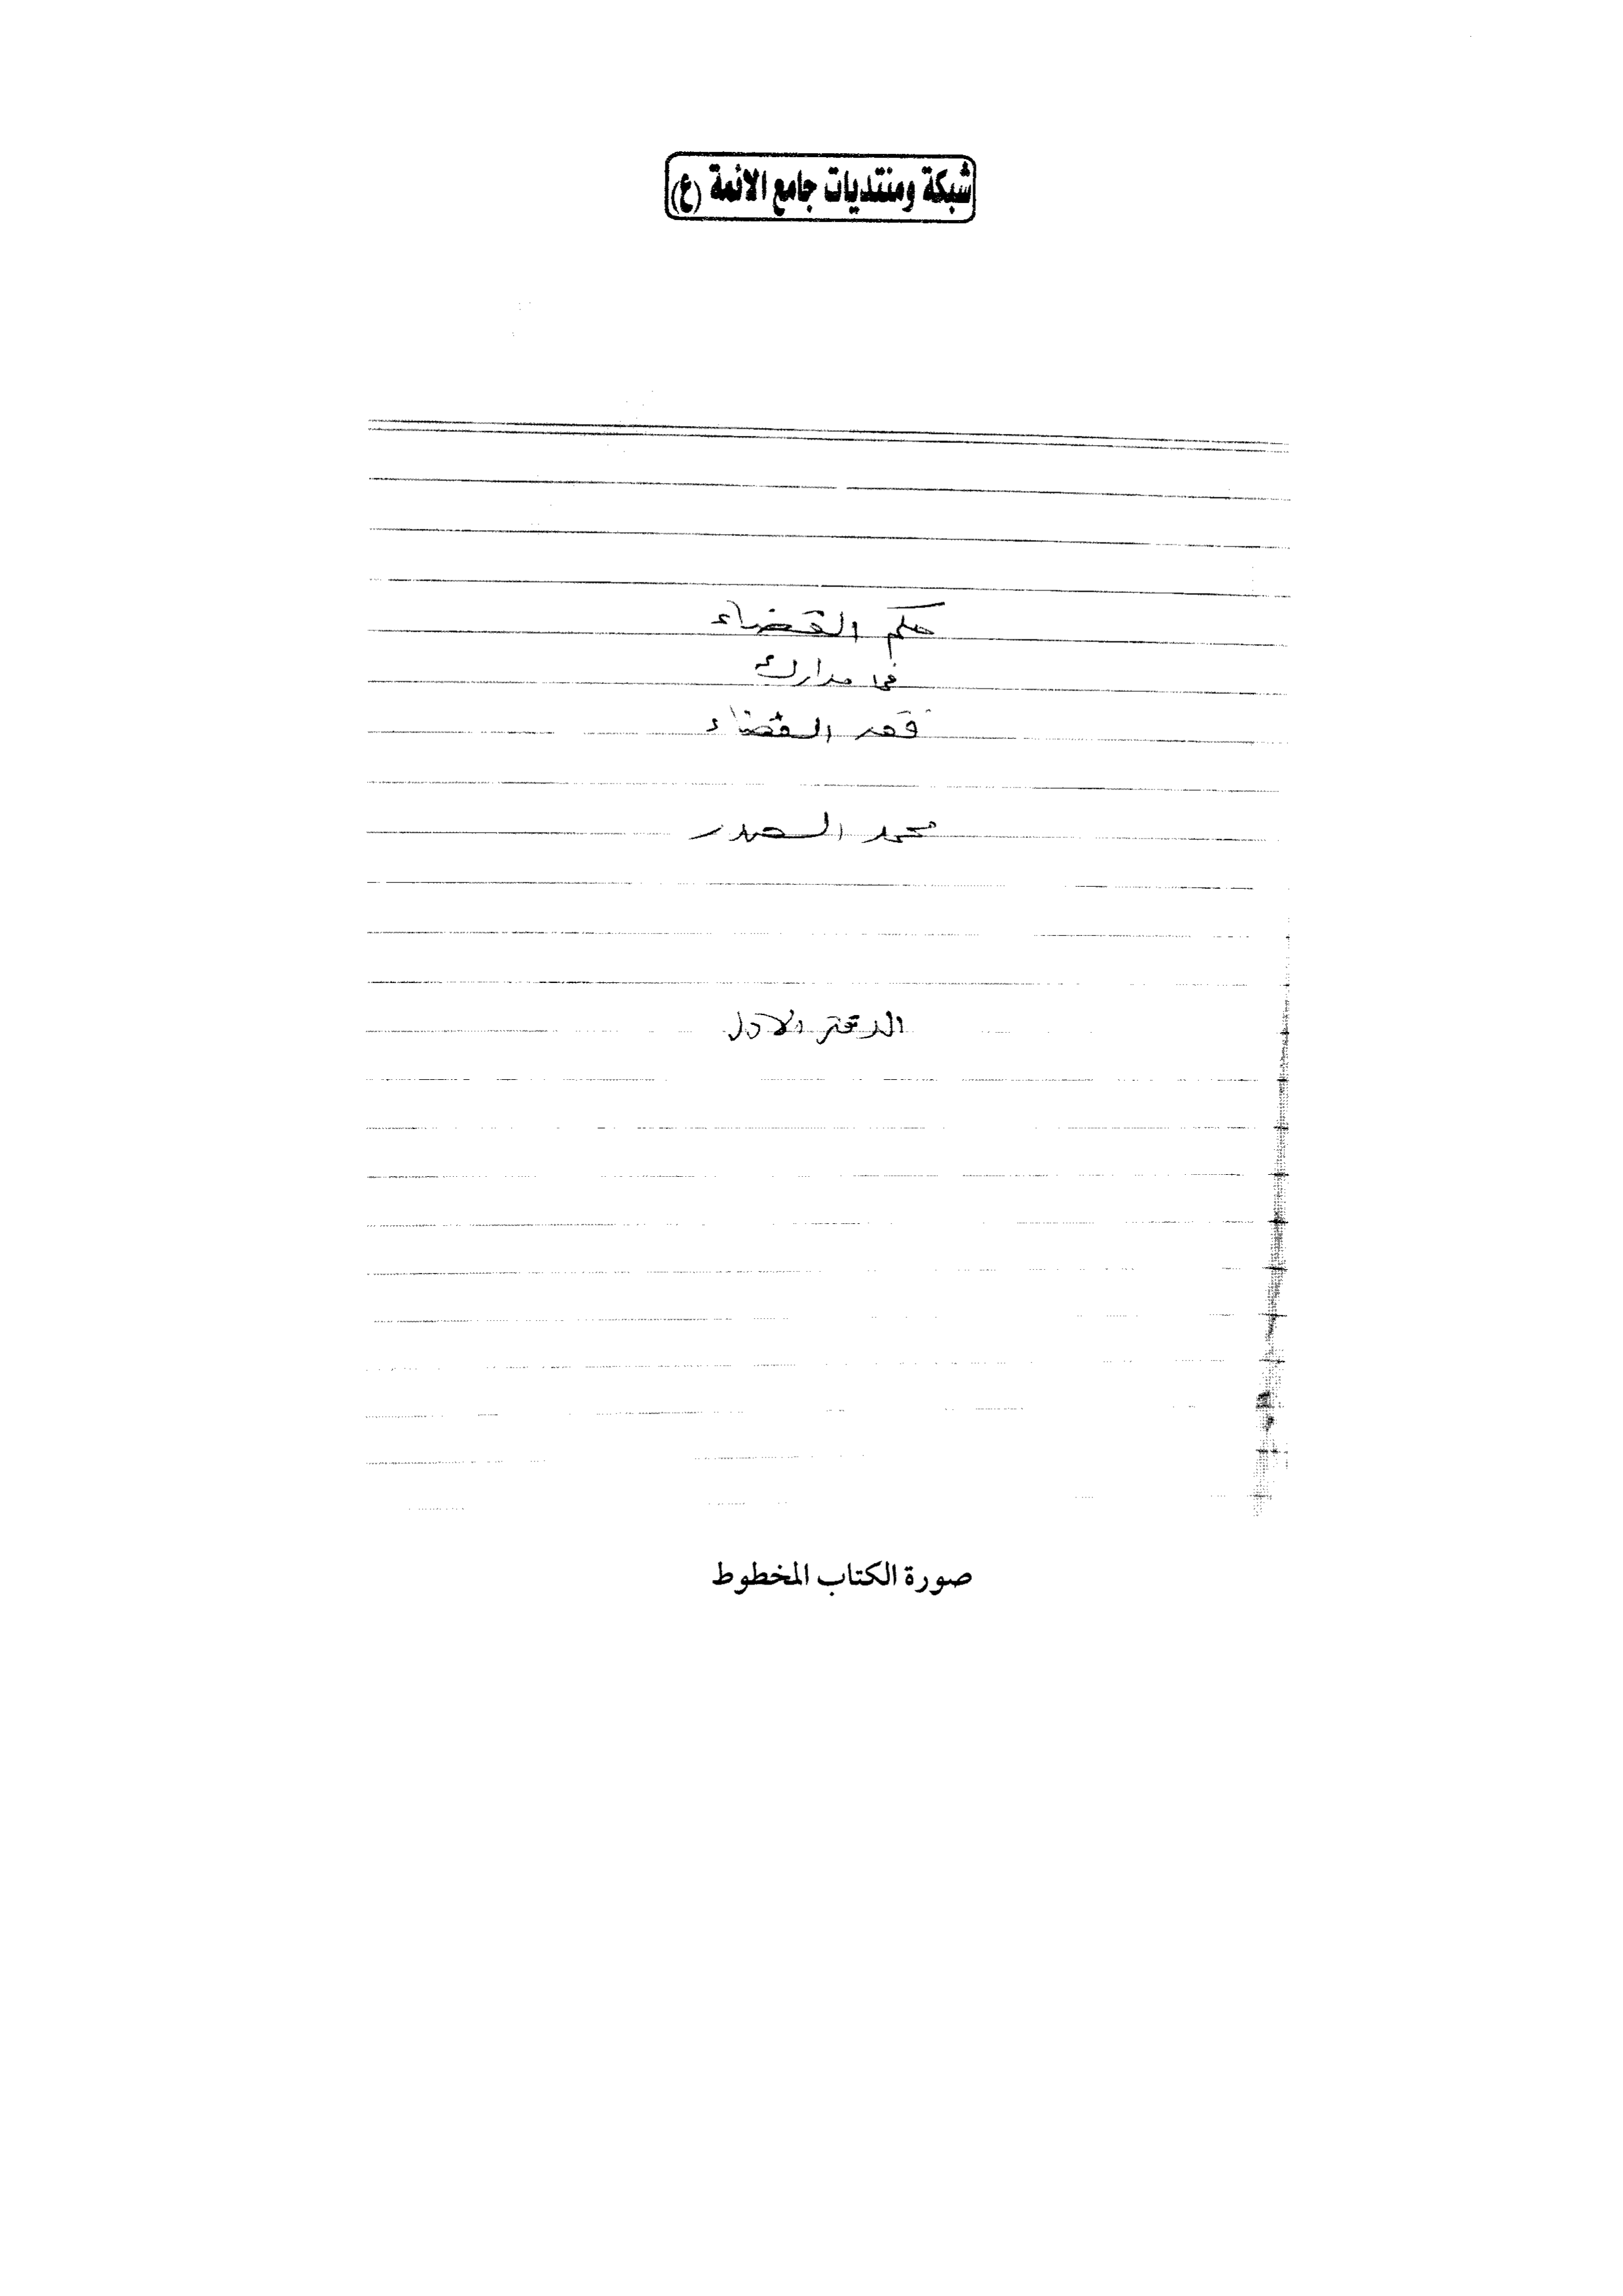 شبكة ومنتديات جامع الائمة (ع)
حكم القضاء
في مدارك
فقه القضاء
محمد الصدر
الدفتر الاول
صورة الكتاب المخطوط